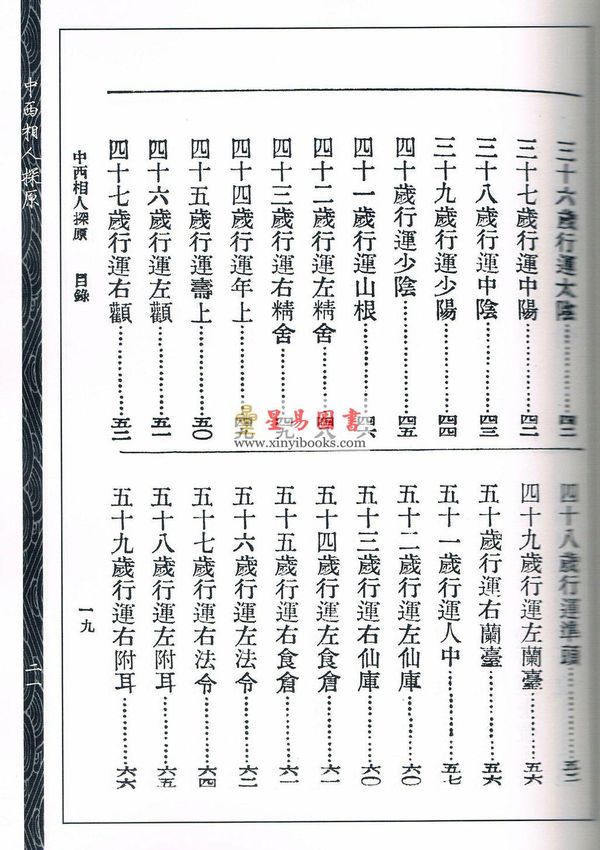 三十六歲行運太陰…………四二
三十七歲行運中陽…………四二
三十八歲行運中陰…………四三
三十九歲行運少陽…………四四
四十歲行運少陰…………四五
四十一歲行運山根…………四六
四十二歲行運左精舍…………四八
四十三歲行運右精舍…………四九
四十四歲行運年上…………四九
四十五歲行運壽上…………五〇
四十六歲行運左顴…………五一
四十七歲行運右顴…………五二
四十八歲行運準頭…………五二
四十九歲行運左蘭臺…………五六
五十歲行運右蘭臺…………五六
五十一歲行運人中…………五七
五十二歲行運左仙庫…………六〇
五十三歲行運右仙庫…………六〇
五十四歲行運左食倉…………六一
五十五歲行運右食倉…………六一
五十六歲行運左法令…………六二
五十七歲行運右法令…………六四
五十八歲行運左附耳…………六五
五十九歲行運右附耳…………六六
中西相人探原 目錄
一九
中西相人探原
二一
星易圖書
www.xinyibooks.com